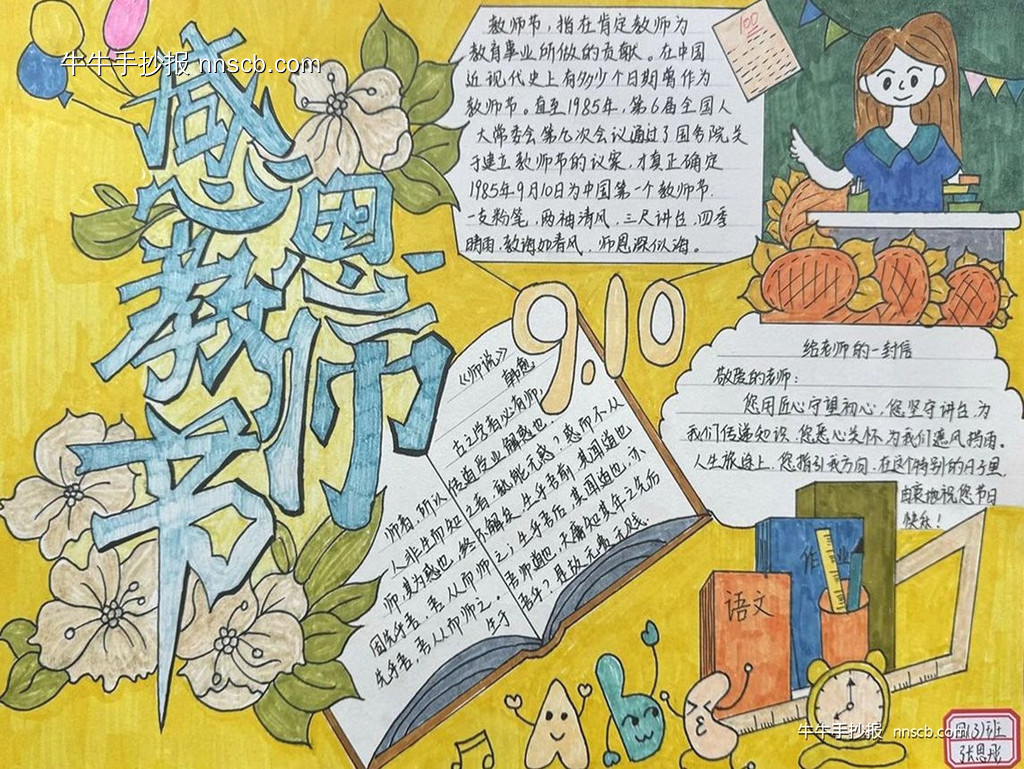 牛牛手抄报 nnscb.com
感恩
教师
节
教师节，指在肯定教师为
教育事业所做的贡献。在中国
近现代史上有多少个日期曾作为
教师节。直至1985年，第6届全国人
大常委会第九次会议通过了国务院关
于建立教师节的议案，才真正确定
1985年9月10日为中国第一个教师节.
一支粉笔，两袖清风，三尺讲台，四季
晴雨，教诲如春风，师恩深似海。
100
9.10
《师说》
韩愈
古之学者必有师，
师者，所以传道受业解惑也，
人非生而知之者，孰能无惑？惑而不从
师，其为惑也，终不解矣。生乎吾前，其闻道也
固先乎吾，吾从而师之；生乎吾后，其闻道也，亦
先乎吾，吾从而师之。吾师道也，夫庸知其年之先后
生于吾乎？是故无贵无贱
给老师的一封信
敬爱的老师：
您用匠心守望初心，您坚守讲台，为
我们传递知识，您悉心关怀为我们遮风挡雨。
人生旅途上，您指引我方向，在这个特别的日子里
由衷地祝您节日
快乐！
作业
语文
A b c
牛牛手抄报 nnscb.com
四(3)班